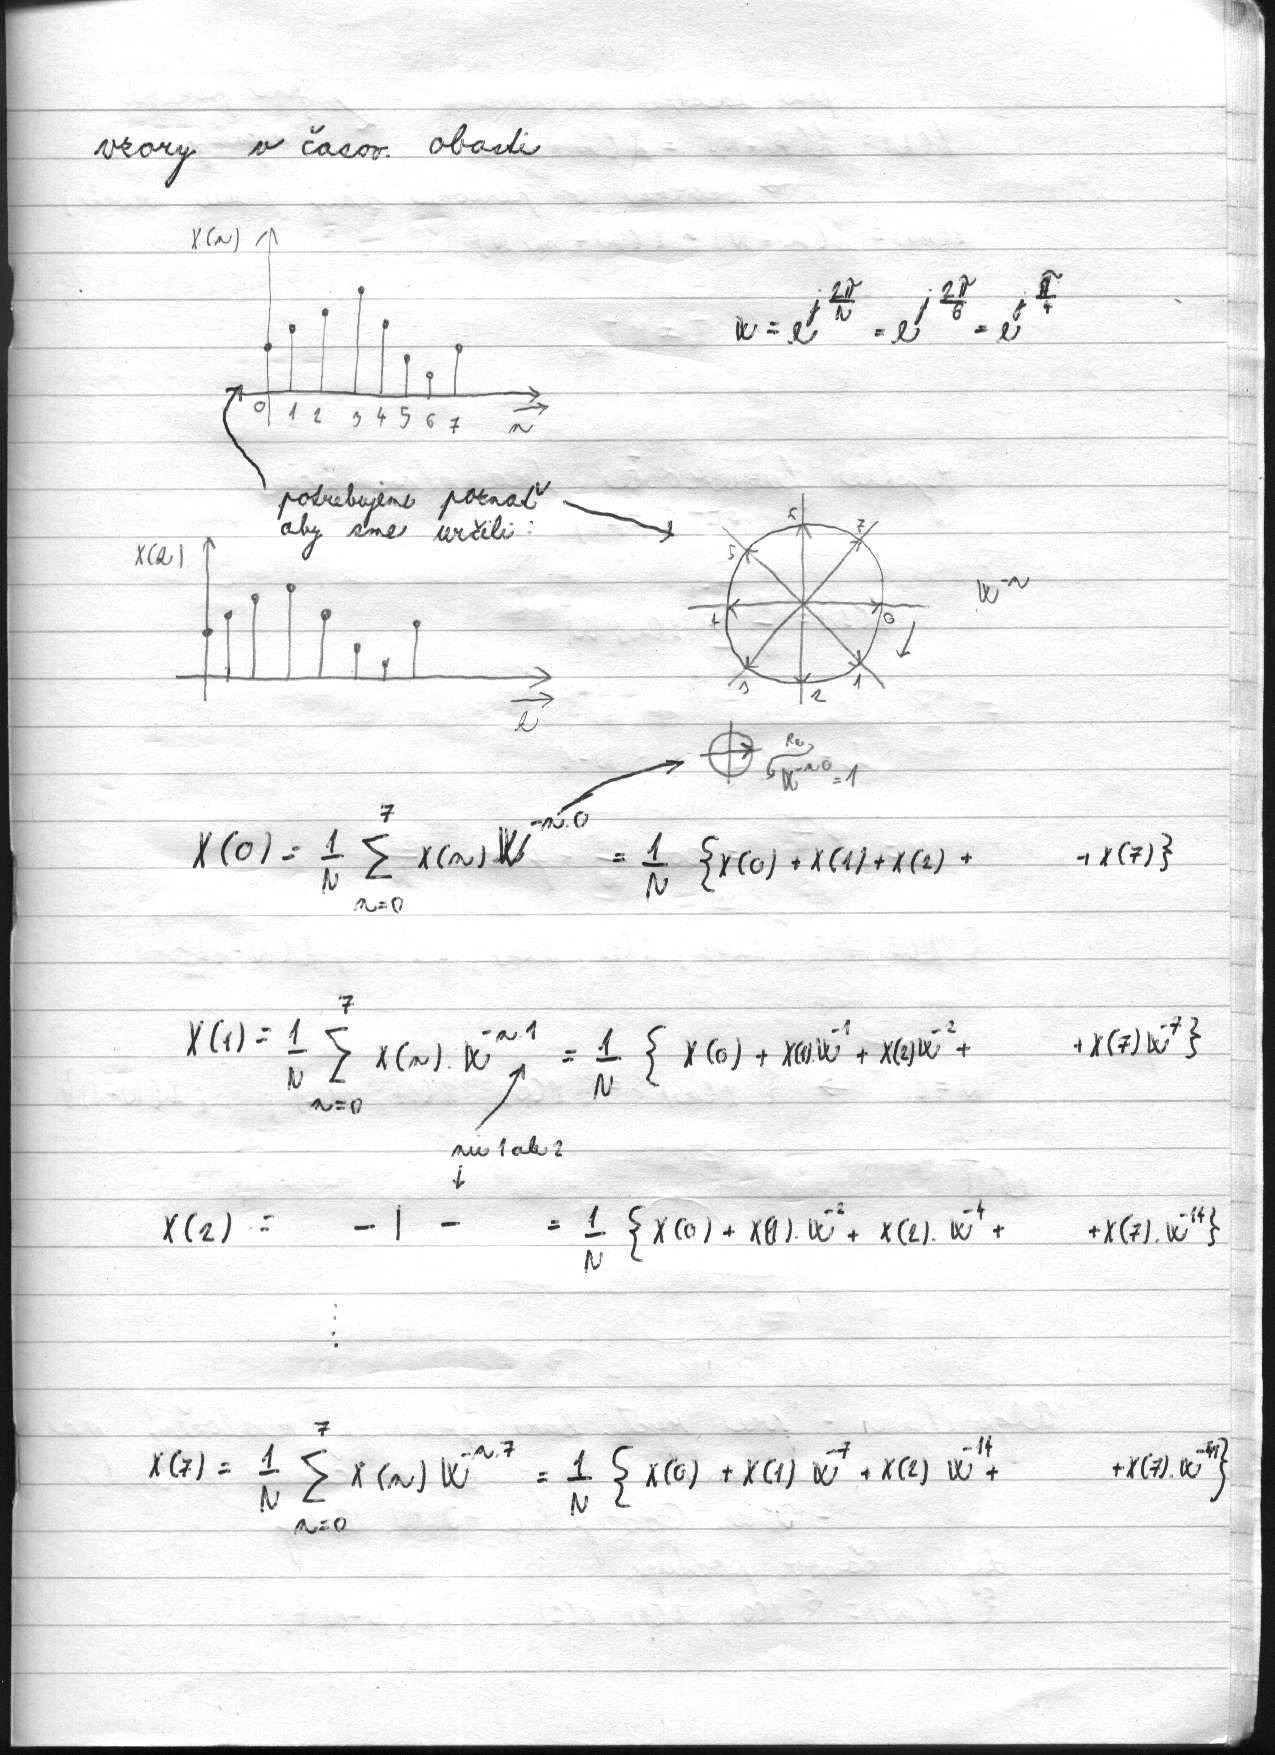 vzory v časov. obasti
x(n)
w = e^{j 2π/N} = e^{j 2π/8} = e^{j π/4}
0 1 2 3 4 5 6 7 n
potrebujeme poznať
aby sme určili:
X(k)
k
5 6 7
4 0
3 2 1
w^{-n}
Re
w^{-n0} = 1
X(0) = 1/N ∑_{n=0}^{7} x(n) w^{-n.0} = 1/N {x(0) + x(1) + x(2) + + x(7)}
X(1) = 1/N ∑_{n=0}^{7} x(n). w^{-n.1} = 1/N { x(0) + x(1)w^{-1} + x(2)w^{-2} + + x(7)w^{-7}}
nie 1 ale 2
X(2) = - | - = 1/N {x(0) + x(1). w^{-2} + x(2). w^{-4} + + x(7). w^{-14}}
X(7) = 1/N ∑_{n=0}^{7} x(n) w^{-n.7} = 1/N { x(0) + x(1) w^{-7} + x(2) w^{-14} + + x(7). w^{-49}}